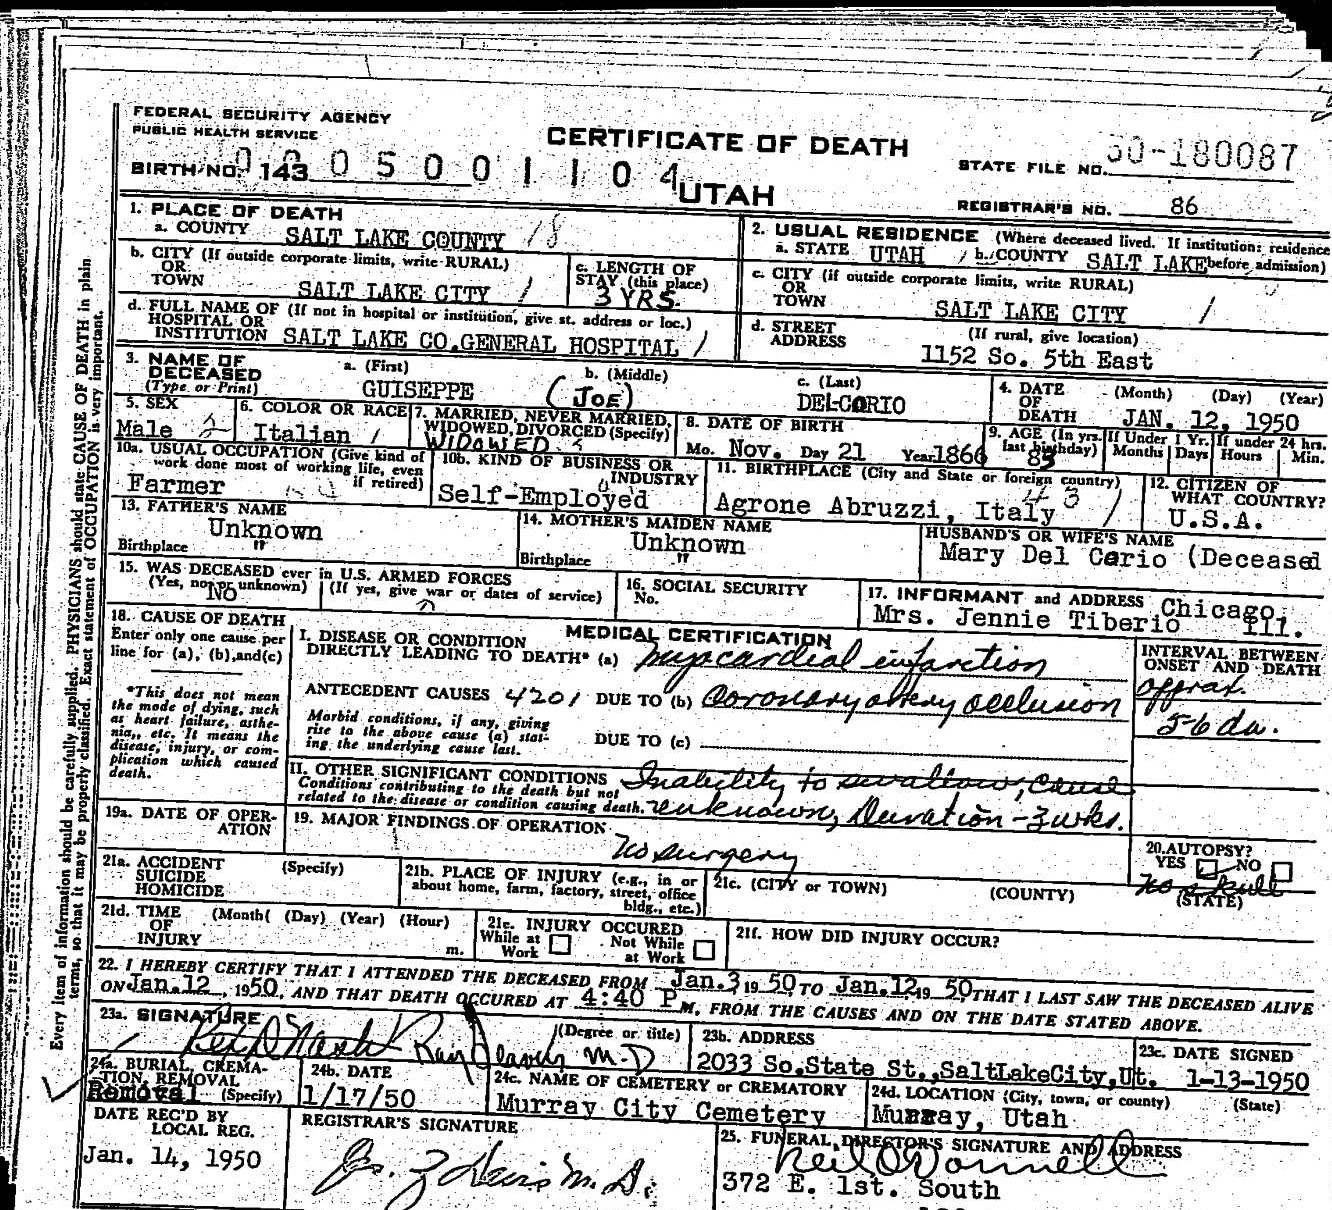 FEDERAL SECURITY AGENCY
PUBLIC HEALTH SERVICE
CERTIFICATE OF DEATH
STATE FILE NO. 50-180087
BIRTH NO. 143 0005001104
UTAH
REGISTRAR'S NO. 86
1. PLACE OF DEATH
a. COUNTY SALT LAKE COUNTY 18
2. USUAL RESIDENCE (Where deceased lived. If institution: residence before admission)
a. STATE UTAH b. COUNTY SALT LAKE
b. CITY (If outside corporate limits, write RURAL)
OR
TOWN SALT LAKE CITY 1
c. LENGTH OF
STAY (this place)
3 YRS.
c. CITY (if outside corporate limits, write RURAL)
OR
TOWN SALT LAKE CITY 1
d. FULL NAME OF (If not in hospital or institution, give st. address or loc.)
HOSPITAL OR
INSTITUTION SALT LAKE CO.GENERAL HOSPITAL 1
d. STREET (If rural, give location)
ADDRESS
1152 So. 5th East
3. NAME OF
DECEASED
(Type or Print)
a. (First)
GUISEPPE
b. (Middle)
(JOE)
c. (Last)
DEL CORIO
4. DATE (Month) (Day) (Year)
OF
DEATH JAN. 12, 1950
5. SEX
Male 2
6. COLOR OR RACE
Italian 1
7. MARRIED, NEVER MARRIED,
WIDOWED, DIVORCED (Specify)
WIDOWED 3
8. DATE OF BIRTH
Mo. Nov. Day 21 Year 1866
9. AGE (In yrs.
last birthday)
83
If Under 1 Yr.
Months Days
If under 24 hrs.
Hours Min.
10a. USUAL OCCUPATION (Give kind of
work done most of working life, even
if retired)
Farmer
10b. KIND OF BUSINESS OR
INDUSTRY
Self-Employed
11. BIRTHPLACE (City and State or foreign country)
Agrone Abruzzi, Italy 43
12. CITIZEN OF
WHAT COUNTRY?
U.S.A.
13. FATHER'S NAME
Unknown
Birthplace "
14. MOTHER'S MAIDEN NAME
Unknown
Birthplace "
HUSBAND'S OR WIFE'S NAME
Mary Del Corio (Deceased
15. WAS DECEASED ever in U.S. ARMED FORCES
(Yes, no or unknown) (If yes, give war or dates of service)
No
16. SOCIAL SECURITY
No.
17. INFORMANT and ADDRESS Chicago,
Mrs. Jennie Tiberio Ill.
18. CAUSE OF DEATH
Enter only one cause per
line for (a), (b), and(c)
*This does not mean
the mode of dying, such
as heart failure, asthe-
nia,, etc. It means the
disease, injury, or com-
plication which caused
death.
MEDICAL CERTIFICATION
I. DISEASE OR CONDITION
DIRECTLY LEADING TO DEATH* (a) Myocardial infarction
ANTECEDENT CAUSES 4201 DUE TO (b) Coronary artery occlusion
Morbid conditions, if any, giving
rise to the above cause (a) stat-
ing the underlying cause last.
DUE TO (c)
INTERVAL BETWEEN
ONSET AND DEATH
approx.
5-6 da.
II. OTHER SIGNIFICANT CONDITIONS
Conditions contributing to the death but not
related to the disease or condition causing death.
Inability to swallow, cause
unknown, Duration - 3 wks.
19a. DATE OF OPER-
ATION
19. MAJOR FINDINGS OF OPERATION
No surgery
20. AUTOPSY?
YES ☑ NO ☐
No skull
21a. ACCIDENT (Specify)
SUICIDE
HOMICIDE
21b. PLACE OF INJURY (e.g., in or
about home, farm, factory, street, office
bldg., etc.)
21c. (CITY or TOWN) (COUNTY) (STATE)
21d. TIME (Month( (Day) (Year) (Hour)
OF
INJURY m.
21e. INJURY OCCURED
While at Work ☐ Not While at Work ☐
21f. HOW DID INJURY OCCUR?
22. I HEREBY CERTIFY THAT I ATTENDED THE DECEASED FROM Jan.3 19 50, TO Jan.12, 19 50, THAT I LAST SAW THE DECEASED ALIVE
ON Jan.12, 1950, AND THAT DEATH OCCURED AT 4:40 P M, FROM THE CAUSES AND ON THE DATE STATED ABOVE.
23a. SIGNATURE (Degree or title)
M.D
23b. ADDRESS
2033 So.State St.,SaltLakeCity,Ut.
23c. DATE SIGNED
1-13-1950
24a. BURIAL, CREMA-
TION, REMOVAL
(Specify)
Removal
24b. DATE
1/17/50
24c. NAME OF CEMETERY or CREMATORY
Murray City Cemetery
24d. LOCATION (City, town, or county) (State)
Murray, Utah
DATE REC'D BY
LOCAL REG.
Jan. 14, 1950
REGISTRAR'S SIGNATURE
25. FUNERAL DIRECTOR'S SIGNATURE AND ADDRESS
Neil O'Donnell
372 E. 1st. South
Every item of information should be carefully supplied. PHYSICIANS should state CAUSE OF DEATH in plain
terms, so that it may be properly classified. Exact statement of OCCUPATION is very important.